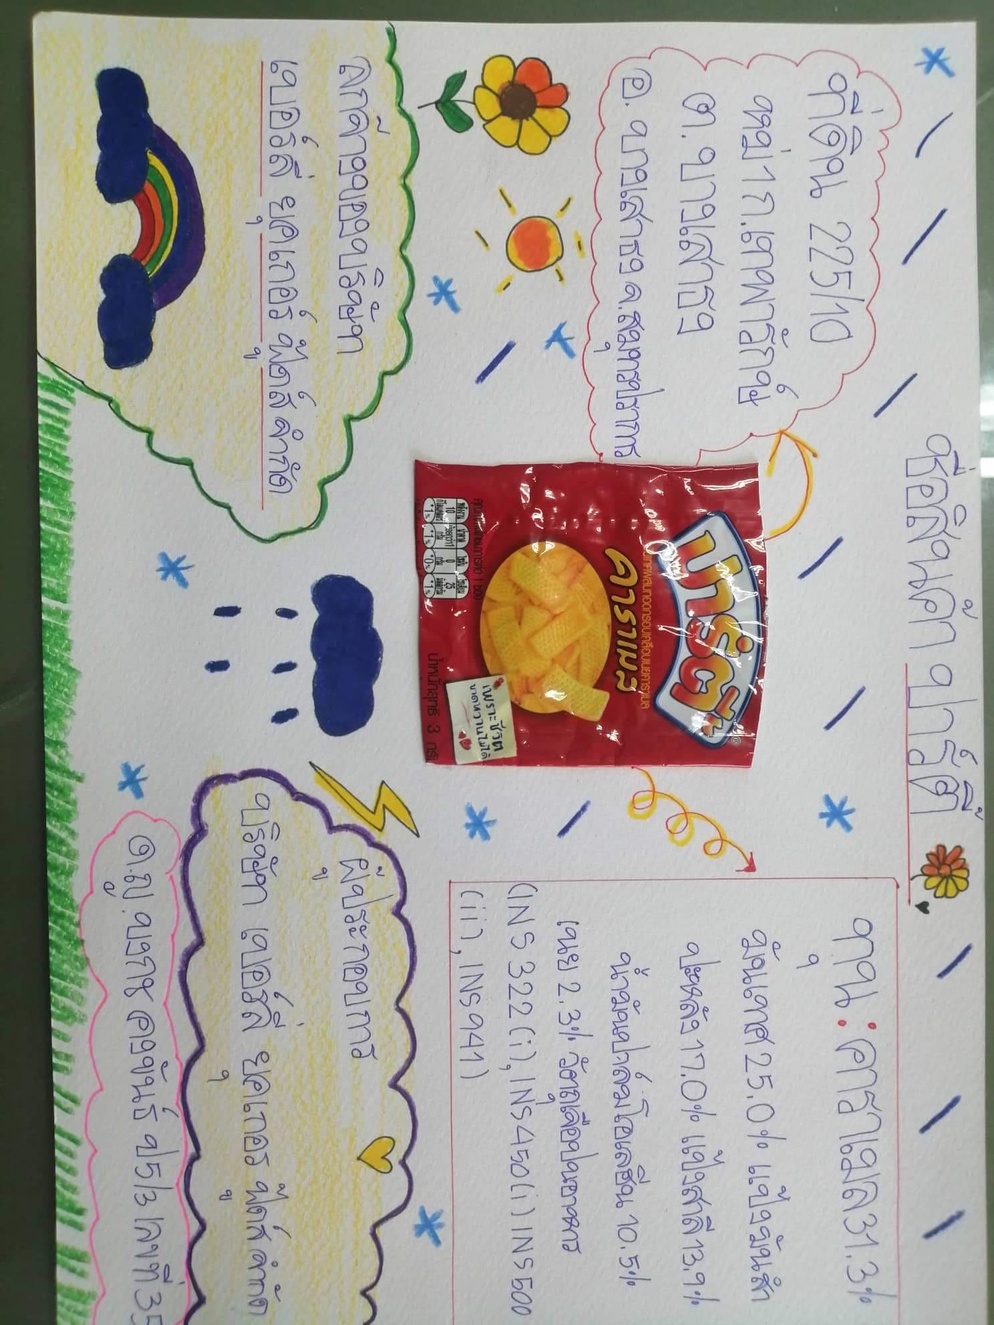 ชื่อสินค้า ปาร์ตี้
ที่ดิน 225/10
หมู่ 1 ถ.เทพารักษ์
ต. บางเสาธง
อ. บางเสาธง จ.สมุทรปราการ
ปาร์ตี้
คาราเมล
เพราะชีวิต
ขาดหวานไม่ได้
น้ำหนักสุทธิ 3 กรัม
ทุน : คาราเมล 31.3%
มันเทศ 25.0% แป้งมันสำ
ปะหลัง 17.0% แป้งสาลี 13.9%
น้ำมันปาล์มโอเลอีน 10.5%
เนย 2.3% วัตถุเจือปนอาหาร
(INS 322(i), INS450(i) INS 500
(ii), INS 941)
ลูกค้าของบริษัท
เบอร์ลี่ ยุคเกอร์ ฟู้ดส์ จำกัด
ผู้ประกอบการ
บริษัท เบอร์ลี่ ยุคเกอร ฟู้ดส์ จำกัด
ด.ญ. ป.5/3 เลขที่ 35